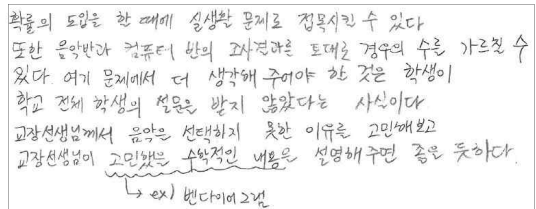 확률의 도입을 한 때에 실생활 문제로 접목시킬 수 있다
또한 음악반과 컴퓨터 반의 조사결과를 토대로 경우의 수를 가르칠 수
있다. 여기 문제에서 더 생각해 주어야 한 것은 학생이
학교 전체 학생의 설문을 받지 않았다는 사실이다
교장선생님께서 음악을 선택하지 못한 이유를 고민해보고
교장선생님이 고민했을 수학적인 내용을 설명해주면 좋을 듯하다.
↳ ex) 벤다이어그램